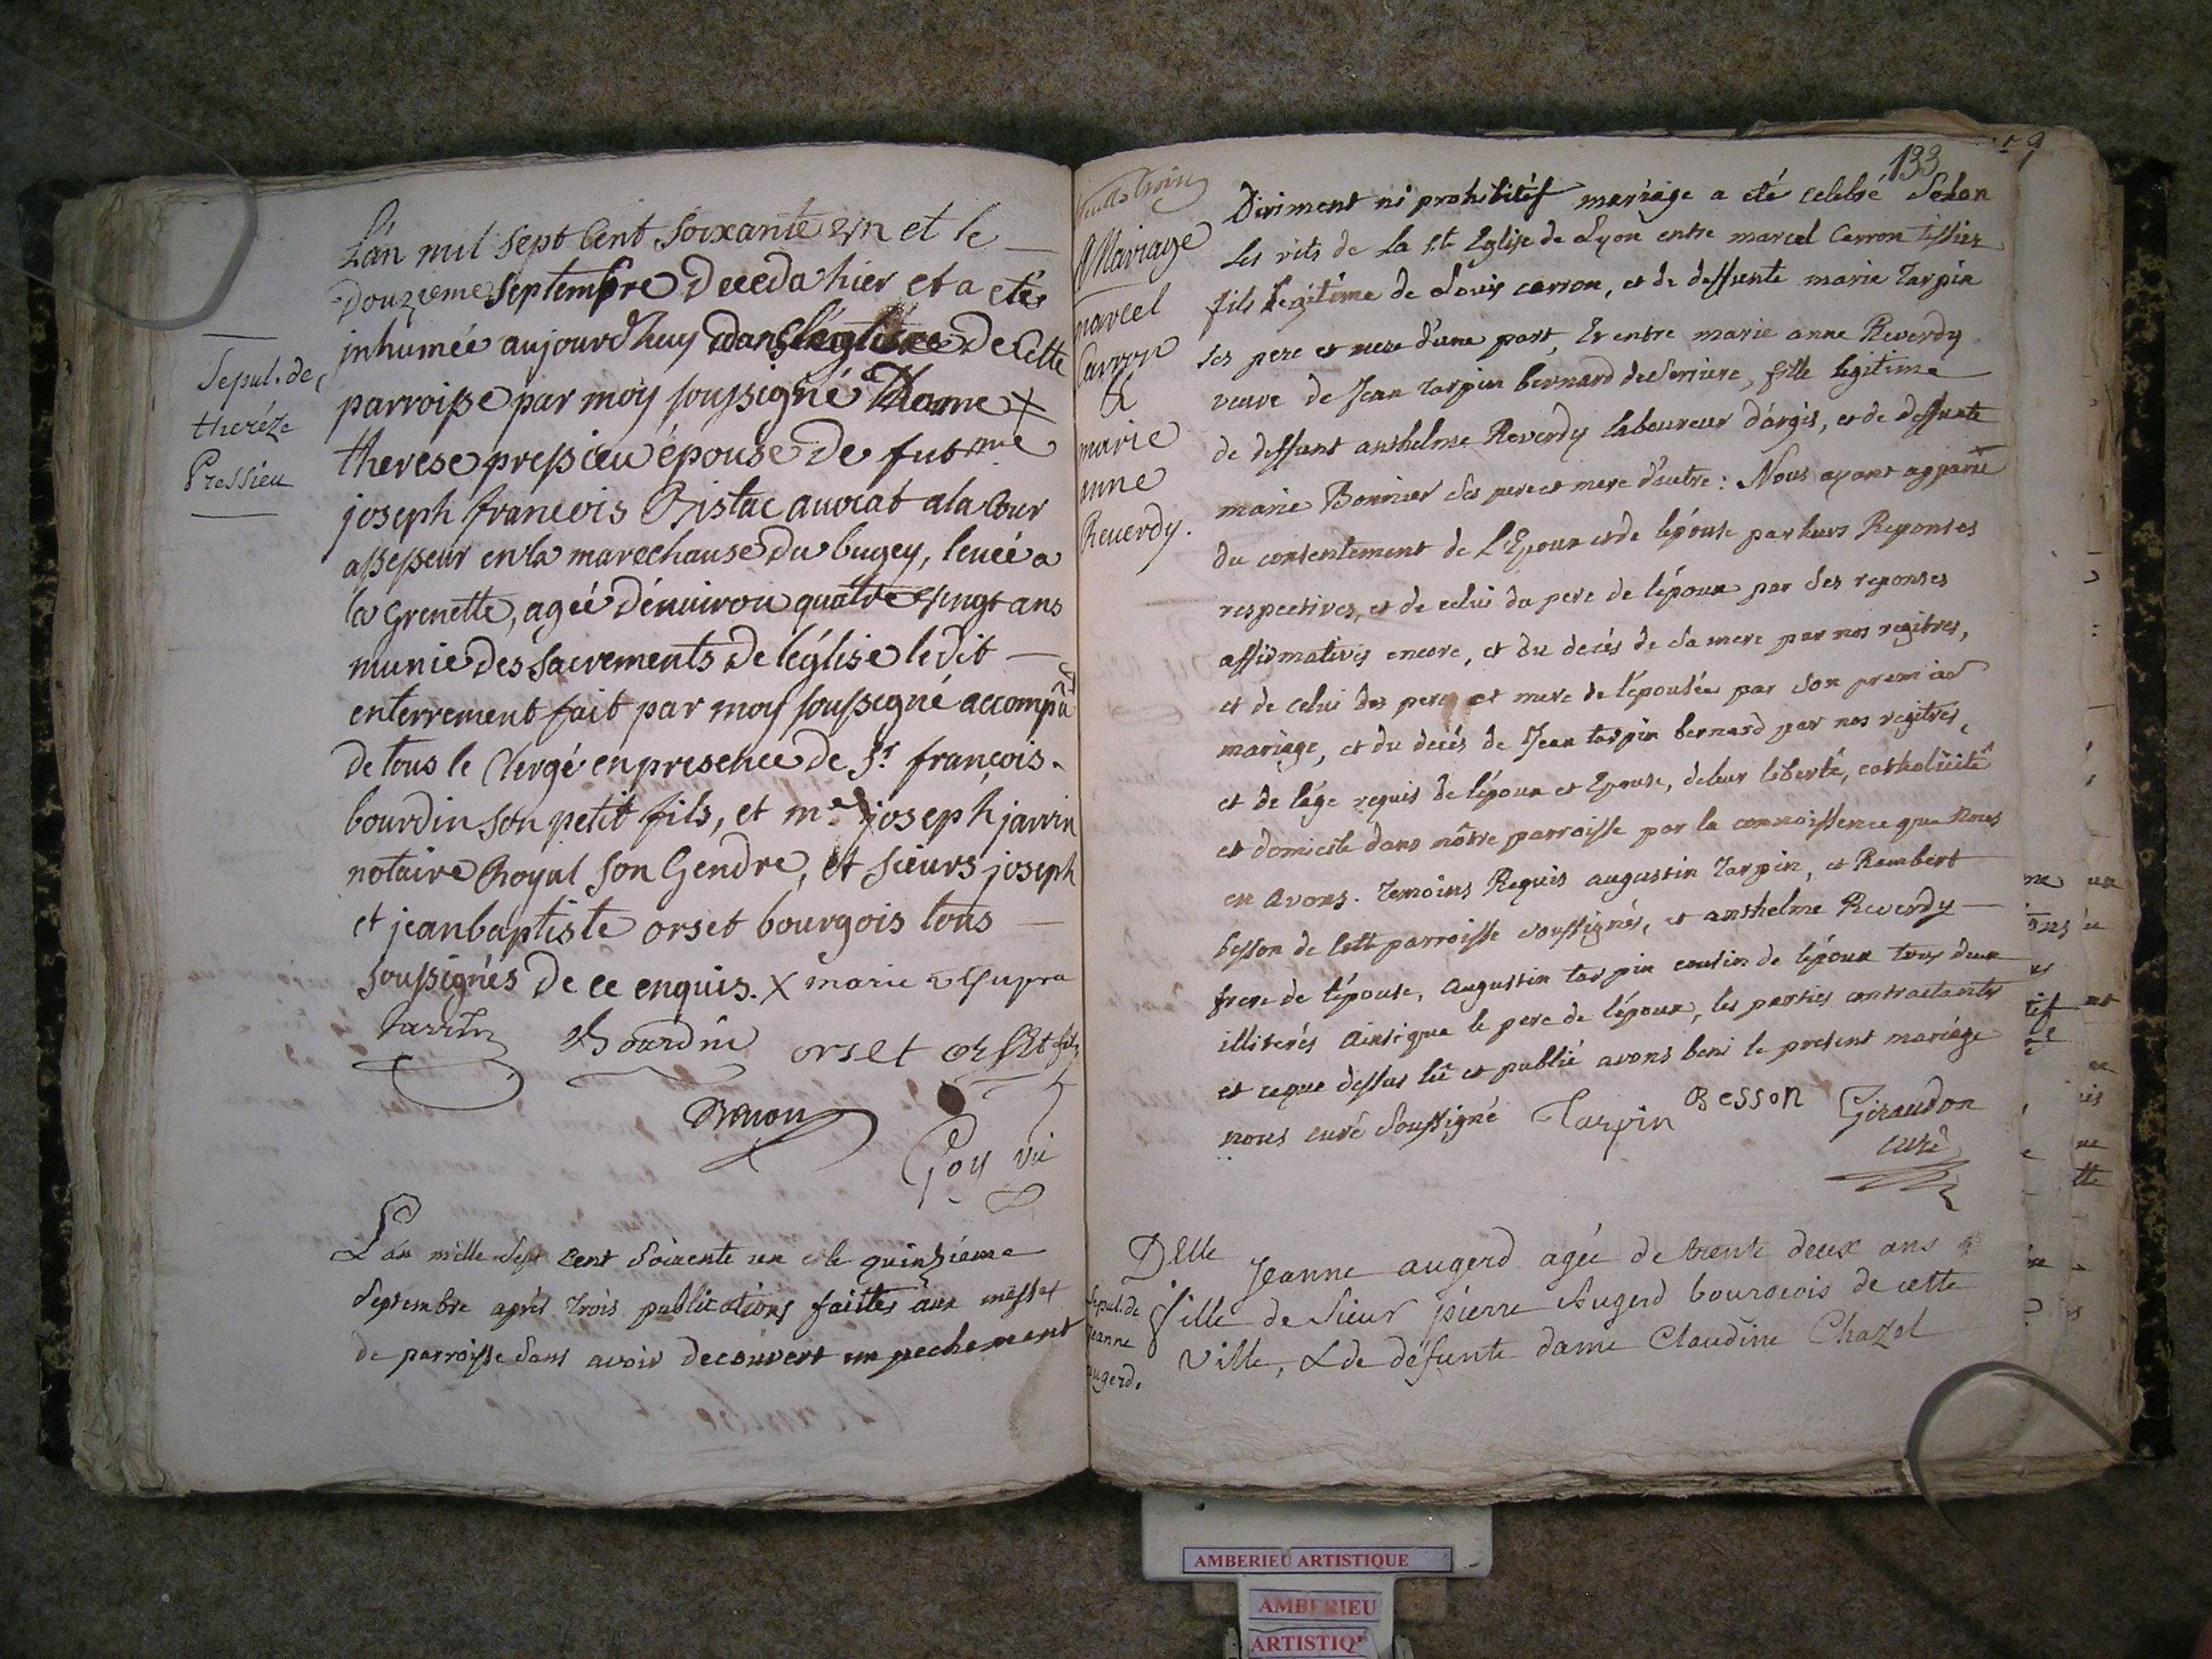 L'an mil sept Cent Soixante un et le
Douzieme Septembre Deceda hier et a eté
inhumée aujourdhuy dans l'eglise de Cette
Sepul. de
theréze
Pressieu
parroisse par moy soussigné Dame X
therese pressieu épouse De fut me
joseph francois Bistac auocat a la Cour
assesseur en la marechausé Du bugey, leuée a
la Grenette, agée d'enuiron quatre vingt ans
munie des Sacrements De l'église ledit
enterrement fait par moy soussigné accompā
de tous le Clergé en presence de Sr françois
bourdin son petit fils, et me joseph jarrin
notaire Royal son Gendre, et Sieurs joseph
et jeanbaptiste orset bourgois tous
soussignés De ce enquis. X marie ut supra
Jarrin Bourdin orset orset fils
Goy vic
L'an mille Sept cent Soixente un et le quinzieme
Septembre aprés trois publications faittes aux messes
de parroisse sans avoir decouvert empechement
133
Mariage
marcel
Carron
&
marie
anne
Reuerdy.
Diriment ni prohibitif mariage a eté celebré Selon
les rits de la Ste Eglise de Lyon entre marcel Carron tissier
fils legitime de Louis carron, et de deffunte marie Tarpin
ses pere et mere d'une part, Et entre marie anne Reverdy
veuve de Jean Tarpin bernard de Serriere, fille legitime
de deffunt anthelme Reverdy laboureur d'argis, et de deffunte
marie Bonnier ses pere et mere d'autre : Nous ayant apparu
du consentement de l'Epoux et de lépouse par leurs Reponses
respectives, et de celui du pere de l'époux par ses reponses
affirmatives encore, et du decés de sa mere par nos regitres,
et de celui des pere et mere de l'épousée par son premier
mariage, et du decés de Jean tarpin bernard par nos regitres,
et de l'âge requis de l'époux et Epouse, de leur liberté, catholicité
et domicile dans nôtre parroisse par la connoissence que nous
en avons. Temoins Requis augustin Tarpin, et Rambert
besson de cette parroisse soussignés, et anthelme Reverdy
frere de l'épouse, augustin tarpin cousin de l'époux tous deux
illiterés ainsi que le pere de l'époux, les parties contractantes
et ce que dessus lû et publié avons beni le present mariage
nous curé Soussigné Tarpin Besson Giraudon
curé
Sepul. de
jeanne
augerd.
Delle Jeanne augerd agée de trente deux ans
fille de Sieur pierre Augerd bourgeois de cette
ville, & de défunte dame Claudine Chazel
AMBERIEU ARTISTIQUE
AMBERIEU
ARTISTIQUE